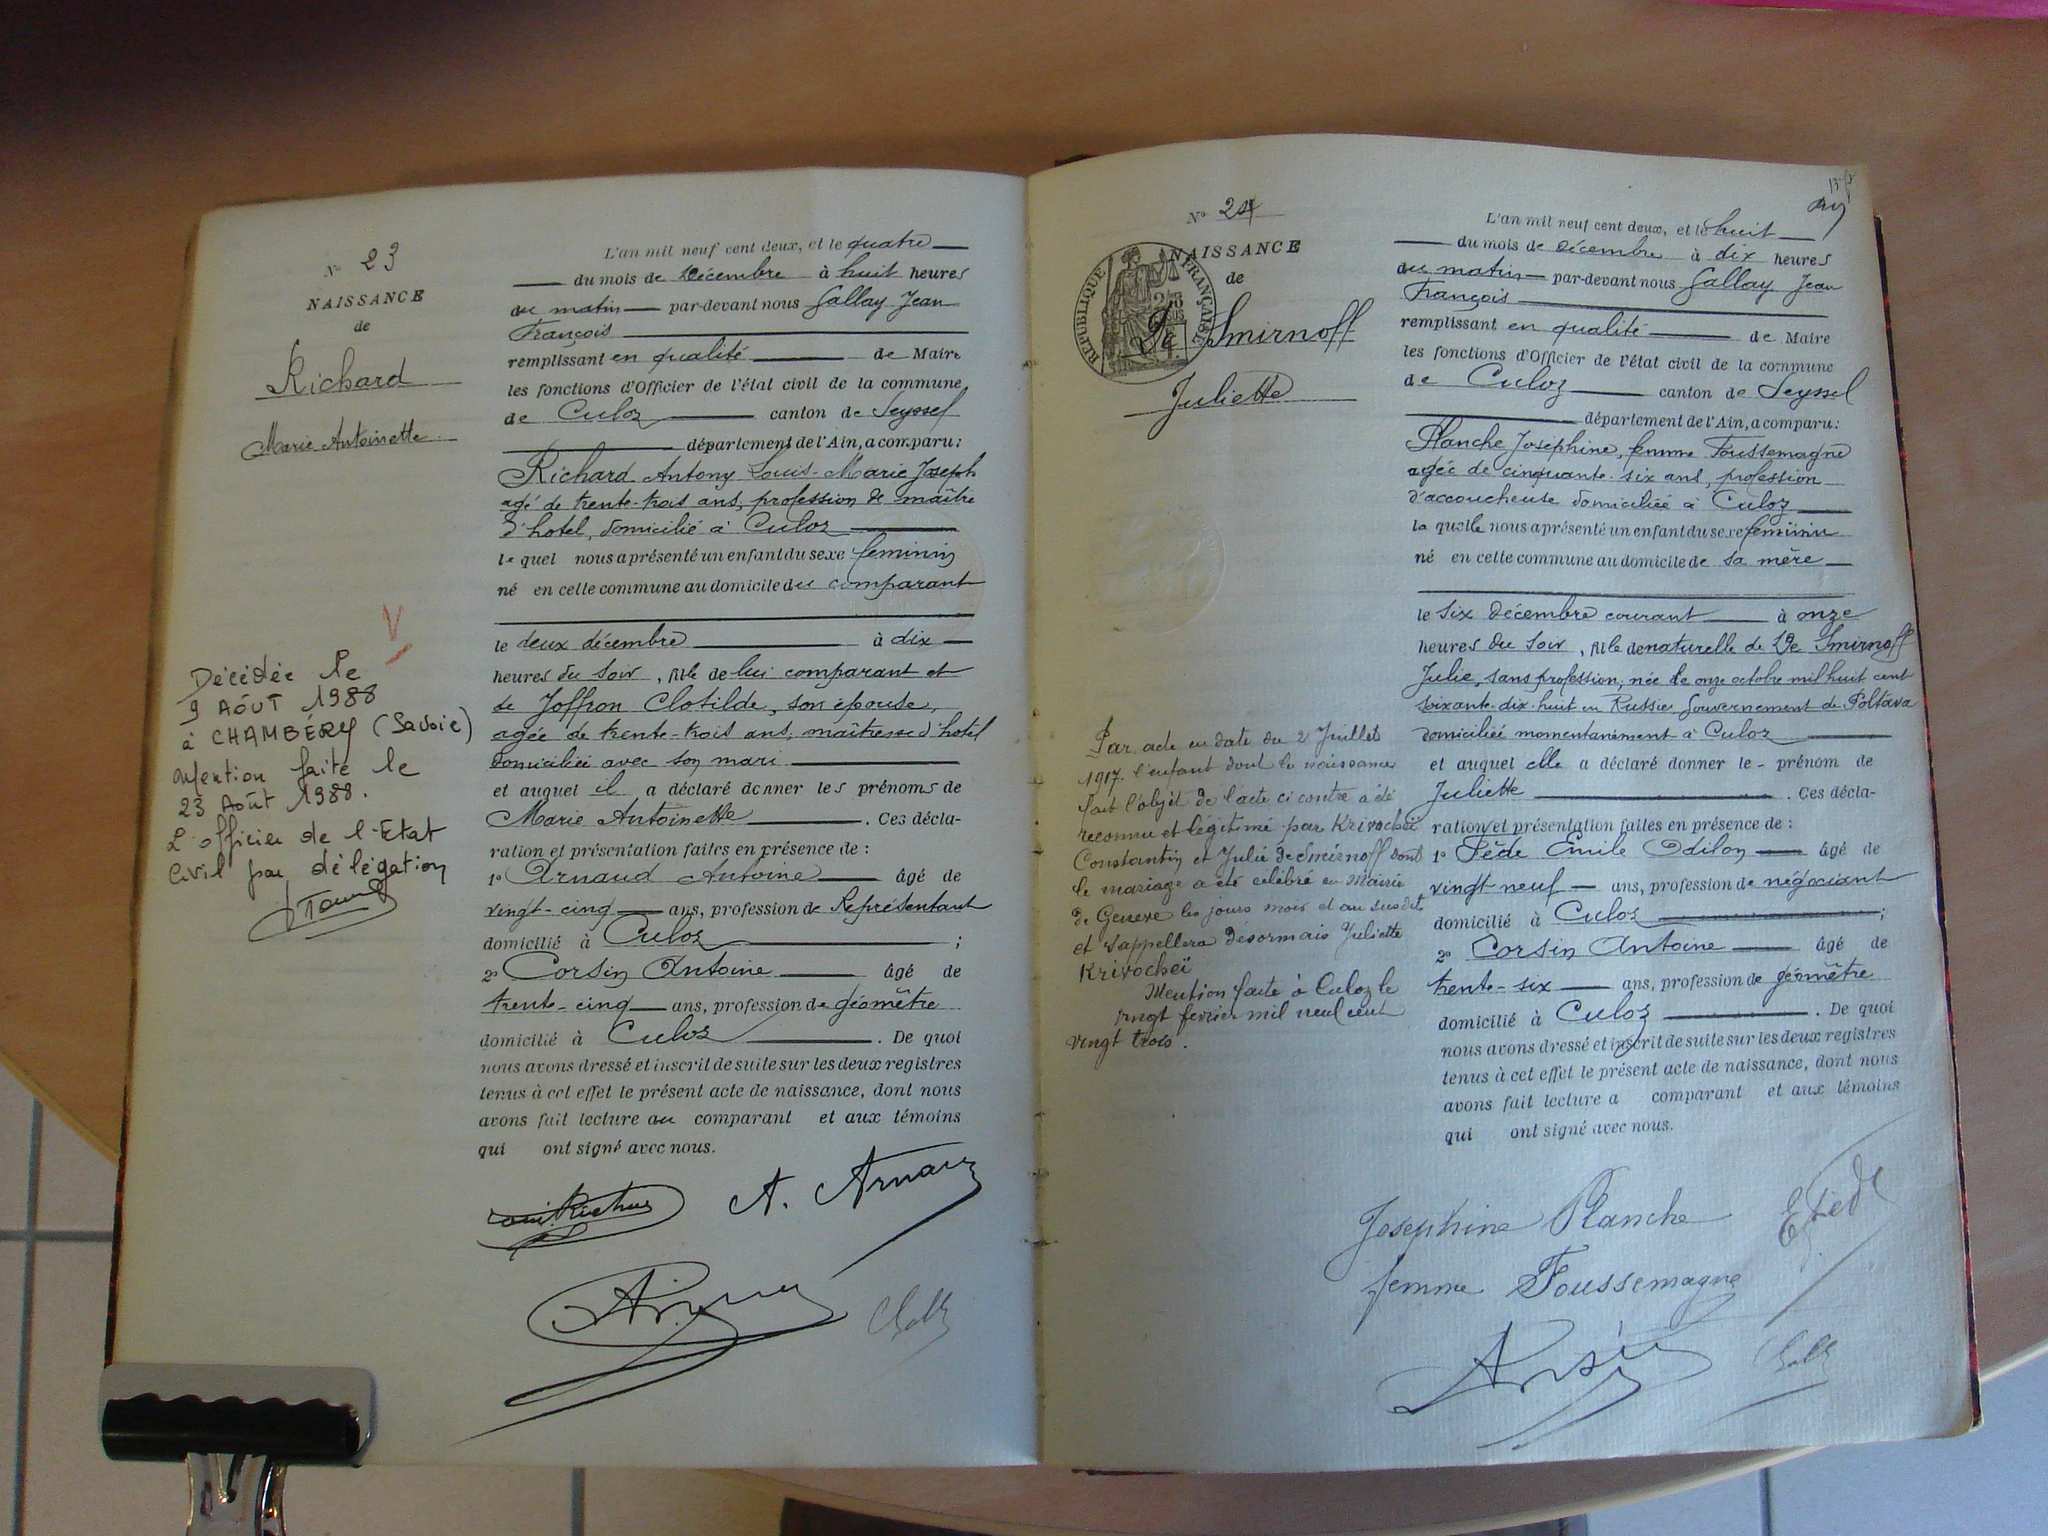 N° 23
NAISSANCE
de
Richard
Marie Antoinette
Décédée le
9 AOÛT 1988
à CHAMBÉRY (Savoie)
mention faite le
23 Août 1988.
L'officier de l'Etat
Civil par délégation
L'an mil neuf cent deux, et le quatre
du mois de Décembre à huit heures
du matin par-devant nous Gallay Jean
François
remplissant en qualité de Maire
les fonctions d'Officier de l'état civil de la commune
de Culoz canton de Seyssel
département de l'Ain, a comparu:
Richard Antony Louis-Marie Joseph
agé de trente-trois ans, profession de maître
d'hotel, domicilié à Culoz
le quel nous a présenté un enfant du sexe feminin
né en cette commune au domicile du comparant
le deux décembre à dix
heures du soir, fille de lui comparant et
de Joffron Clotilde, son épouse,
agée de trente-trois ans, maîtresse d'hotel
domiciliée avec son mari
et auquel il a déclaré donner les prénoms de
Marie Antoinette. Ces décla-
ration et présentation faites en présence de :
1° Arnaud Antoine âgé de
vingt-cinq ans, profession de Représentant
domicilié à Culoz ;
2° Corsin Antoine âgé de
trente-cinq ans, profession de géomètre
domicilié à Culoz. De quoi
nous avons dressé et inscrit de suite sur les deux registres
tenus à cet effet le présent acte de naissance, dont nous
avons fait lecture au comparant et aux témoins
qui ont signé avec nous.
A. Arnaud
N° 24
NAISSANCE
de
RÉPUBLIQUE FRANÇAISE
De Smirnoff
Juliette
Par acte en date du 2 Juillet
1917. l'enfant dont la naissance
fait l'objet de l'acte ci contre a été
reconnu et légitimé par Krivocheï
Constantin et Julie de Smirnoff dont
le mariage a été célébré en Mairie
de Genève les jours mois et an susdit
et s'appellera désormais Juliette
Krivocheï
Mention faite à Culoz le
vingt fevrier mil neuf cent
vingt trois.
L'an mil neuf cent deux, et le huit
du mois de Décembre à dix heures
du matin par-devant nous Gallay Jean
François
remplissant en qualité de Maire
les fonctions d'Officier de l'état civil de la commune
de Culoz canton de Seyssel
département de l'Ain, a comparu:
Planche Joséphine, femme Foussemagne
agée de cinquante-six ans, profession
d'accoucheuse domiciliée à Culoz
la quelle nous a présenté un enfant du sexe feminin
né en cette commune au domicile de sa mère
le six décembre courant à onze
heures du soir, fille de naturelle de De Smirnoff
Julie, sans profession, née le onze octobre mil huit cent
soixante-dix-huit en Russie Gouvernement de Poltava
domiciliée momentanément à Culoz
et auquel elle a déclaré donner le prénom de
Juliette. Ces décla-
ration et présentation faites en présence de :
1° Pède Emile Odilon âgé de
vingt neuf ans, profession de négociant
domicilié à Culoz ;
2° Corsin Antoine âgé de
trente-six ans, profession de géomètre
domicilié à Culoz. De quoi
nous avons dressé et inscrit de suite sur les deux registres
tenus à cet effet le présent acte de naissance, dont nous
avons fait lecture a comparant et aux témoins
qui ont signé avec nous.
Josephine Planche
femme Foussemagne